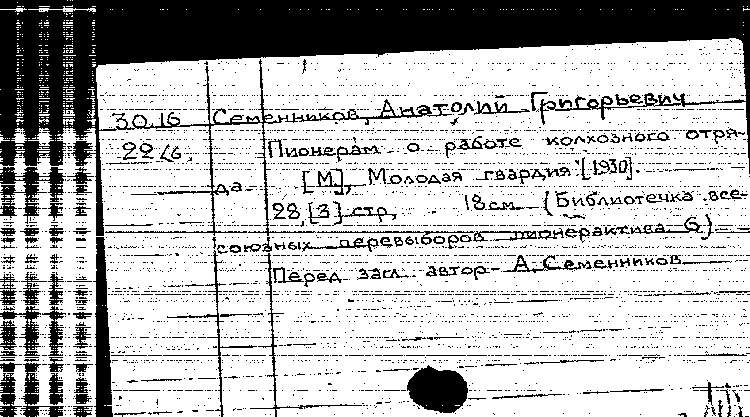 30.16 Семенников, Анатолий Григорьевич
22 16. Пионерам о работе колхозного отря-
да. [М.], Молодая гвардия [1930].
28,[3] стр, 18см (Библиотечка все-
союзных перевыборов пионерактива 6)
Перед загл. автор- А. Семенников